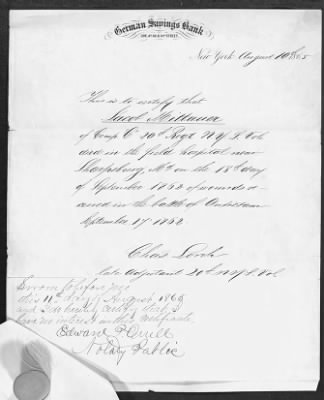 German Savings Bank
New York August 10th 1865
This is to certify that
Jacob Mittnauer
of Comp C 20th Regt N Y S Vol
died in the field hospital near
Sharpsburg Md on the 18th day
of September 1862 of wounds re
ceived in the battle of Antietam
September 17 1862.
Chas Lorch
late Adjutant 20th N Y S Vol
Sworn to before me
this 11th day of August 1865
and I do hereby certify that I
have no interest in this
Edward
Notary Public